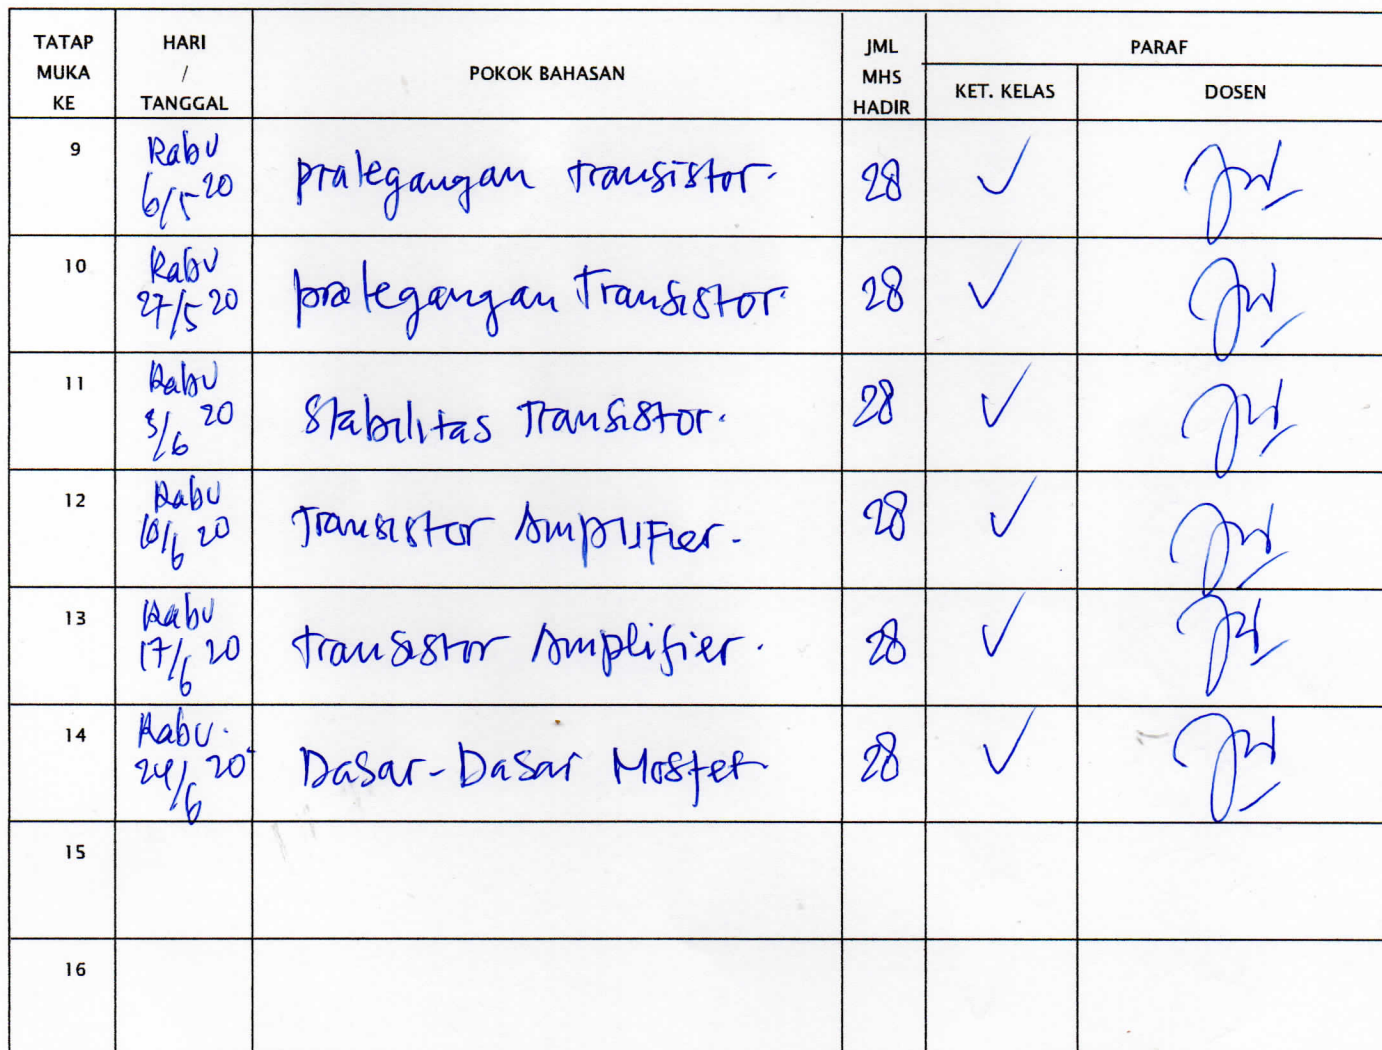 TATAP MUKA KE HARI / TANGGAL POKOK BAHASAN JML MHS HADIR PARAF
KET. KELAS DOSEN
9 Rabu 6/5 20 pralegangan transistor. 28 ✓
10 Rabu 27/5 20 pralegangan Transistor 28 ✓
11 Rabu 3/6 20 Stabilitas Transistor. 28 ✓
12 Rabu 10/6 20 Transistor Amplifier. 28 ✓
13 Rabu 17/6 20 transistor Amplifier. 28 ✓
14 Rabu. 24/6 20 Dasar-Dasar Mosfet 28 ✓
15
16